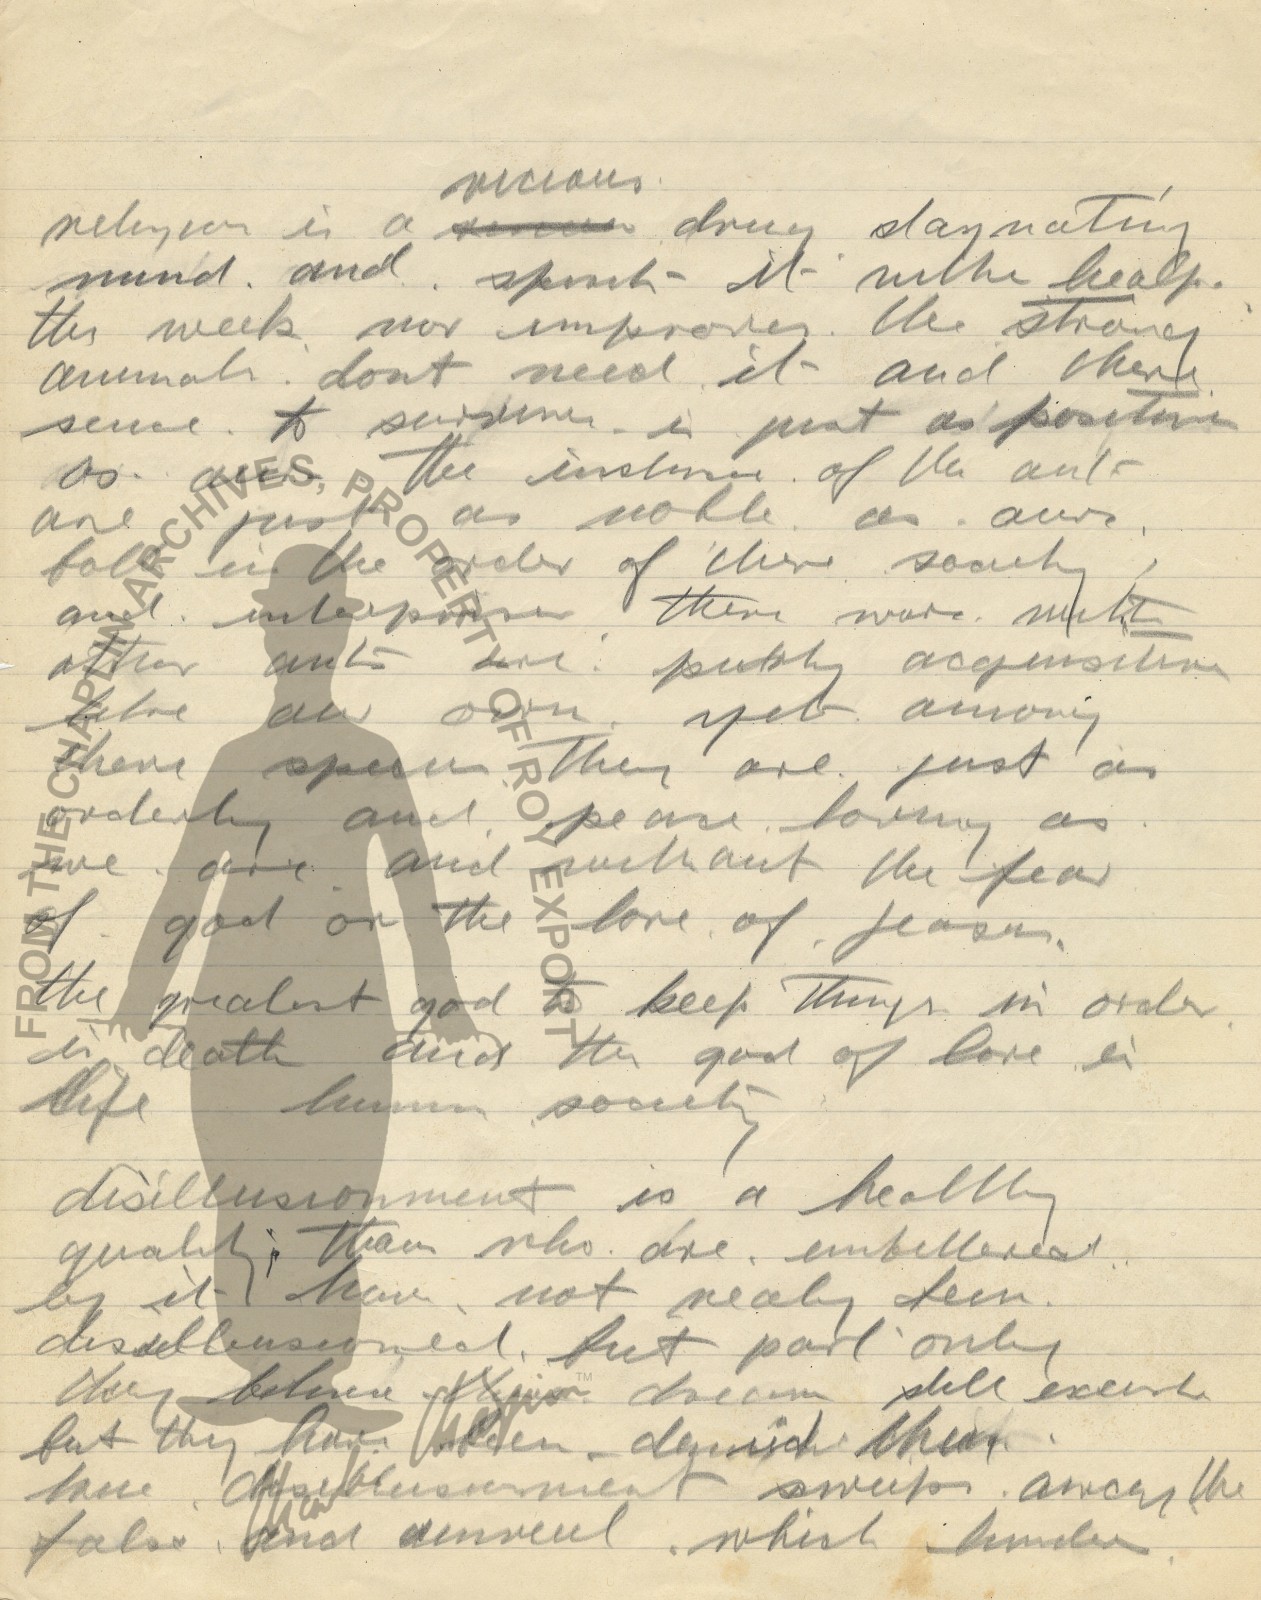 vicious
religion is a drug stagnating
mind. and. spirit it niether healp.
the week nor improves. the strong
animals. dont need it and there
sence. to survive. is just as positive
as our the instince. of the ant
are just as noble. as. ours.
both in the order of there society,
and. enterprises there wars with
other ants are pettly acquisitive
like our own. yet. among
there specis They are. just as
orderly and. pease. loving as
we. are. and without the fear
of. god or the love. of. jeasus.
the greatest god to keep things in order
is death and the god of love is
life human society
disillusionment is a healthy
quality, them who. are. embittered.
by it have. not realy been.
disillusioned. but part only
they believe there dream still excists
but they have. been. denied them.
true disillusionment sweeps. away the
false. and unreal. which hinder.
FROM THE CHAPLIN ARCHIVES, PROPERTY OF ROY EXPORT
TM